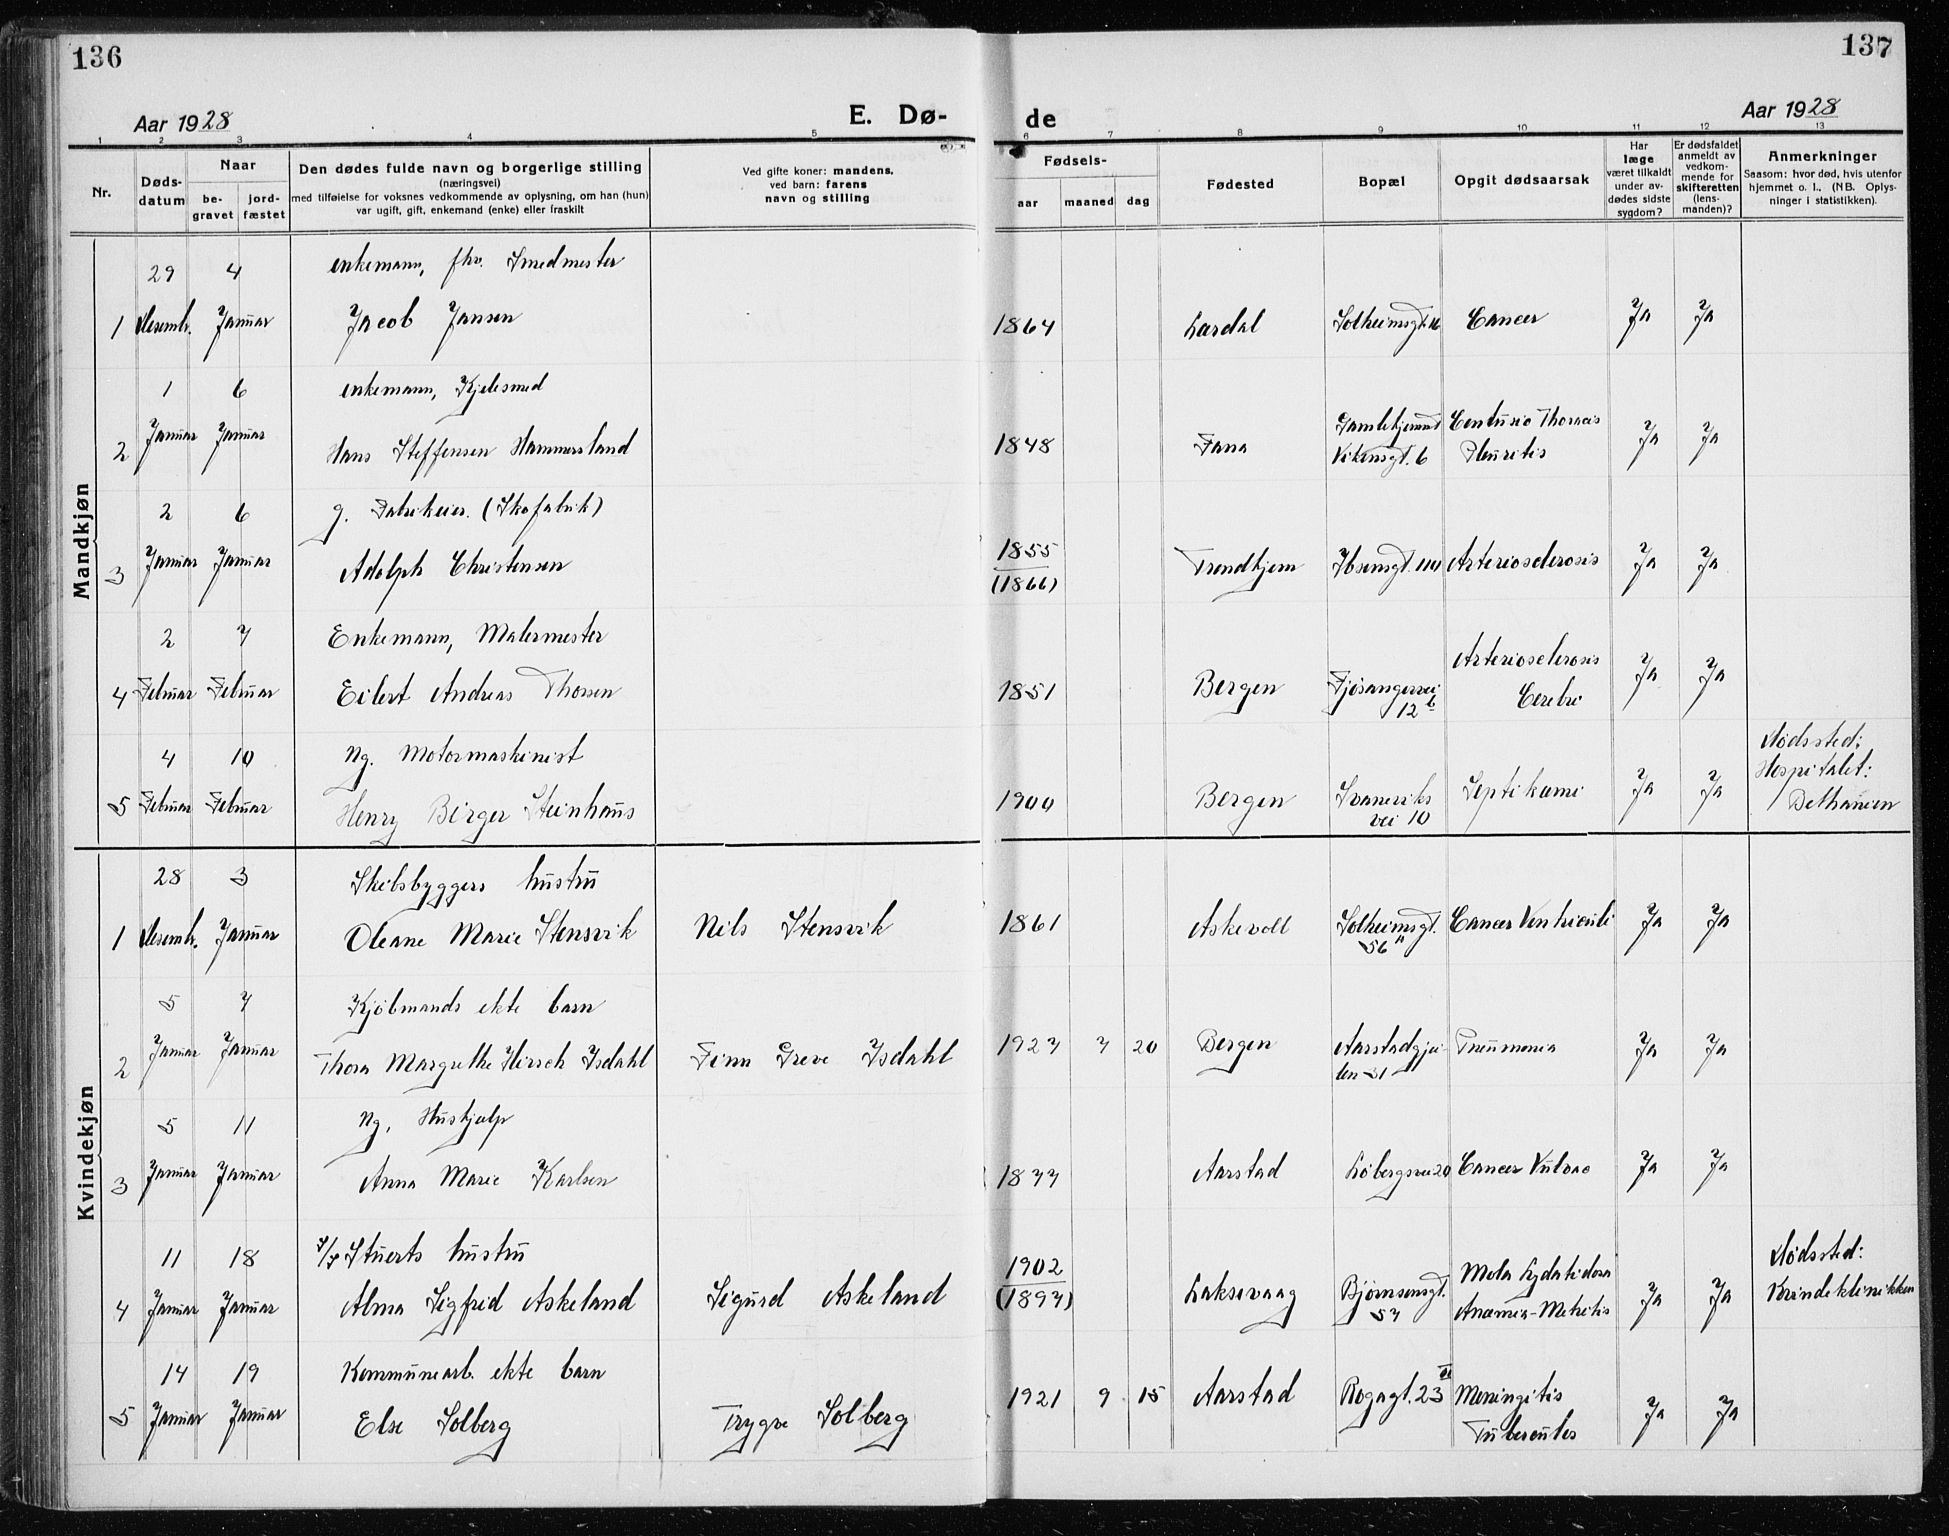 136
137
Aar 1928
E. Dø-
de
Aar 1928
1 2 3 4 5 6 7 8 9 10 11 12 13
Nr.
Døds-
datum
Naar
be-
gravet
jord-
fæstet
Den dødes fulde navn og borgerlige stilling
(næringsvei)
med tilføielse for voksnes vedkommende av oplysning, om han (hun)
var ugift, gift, enkemand (enke) eller fraskilt
Ved gifte koner: mandens,
ved barn: farens
navn og stilling
Fødsels-
aar maaned dag
Fødested
Bopæl
Opgit dødsaarsak
Har
læge
været tilkaldt
under av-
dødes sidste
sygdom?
Er dødsfaldet
anmeldt av
vedkom-
mende for
skifteretten
(lens-
manden)?
Anmerkninger
Saasom: hvor død, hvis utenfor
hjemmet o. l., (NB. Oplys-
ninger i statistikken).
Mandkjøn
29 4 enkemann, fhv. Smedmester
1 Desembr. Januar Jacob Jansen 1864 Lardal Solheimsgt. 16 Cancer Ja Ja
1 6 enkemann, Kjelesmed
2 Januar Januar Hans Steffensen Hammersland 1848 Fana Gamlehjemmet Contusio Thoracis Ja Ja
Vikensgt. 6 Pleuritis
2 6 g. Fabrikeier. (Skofabrik)
3 Januar Januar Adolph Christensen 1855 Trondhjem Ibsensgt. Arteriosclerosis Ja Ja
(1866)
2 7 Enkemann, Malermester
4 Februar Februar Eilert Andreas Thorsen 1851 Bergen Fjøsangervei Arteriosclerosis Ja Ja
12 b Cerebri
4 10 Ug. Motormaskinist
5 Februar Februar Henry Birger Steinhaus 1900 Bergen Svaneviks Septikæmi Ja Ja
vei 10
Dødssted:
Hospitalet:
Bethanien
Kvindekjøn
28 3 Skibsbyggers hustru
1 Desembr. Januar Oleane Marie Stensvik Nils Stensvik 1861 Askevoll Solheimsgt. Cancer Ventriculi Ja Ja
56
5 7 Kjøbmands ekte barn
2 Januar Januar Thora Margrethe Hirsch Isdahl Finn Greve Isdahl 1927 7 20 Bergen Aarstadgjei- Pneumonia Ja Ja
len 31
5 11 Ug. Hushjælp
3 Januar Januar Anna Marie Karlsen 1877 Aarstad Løbergsvei 20 Cancer Vulvae Ja Ja
11 18 Stuerts hustru
4 Januar Januar Alma Sigfrid Askeland Sigurd Askeland 1902 Laksevaag Bjørnsonsgt. Mola hydatidosa Ja Ja
(1897) 57 Anæmia-Metritis
Dødssted:
Kvindeklinikken
14 19 Kommunearb. ekte barn
5 Januar Januar Else Solberg Trygve Solberg 1921 9 15 Aarstad Rogagt. 23 Meningitis Ja Ja
Tuberculos